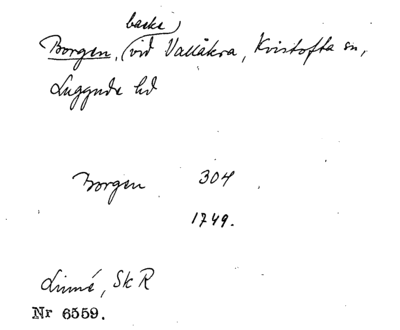 backe)
Borgen, (vid Vallåkra, Kvistofta sn,
Luggude hd
Borgen 304
1749.
Linné, Sk R
Nr 6559.